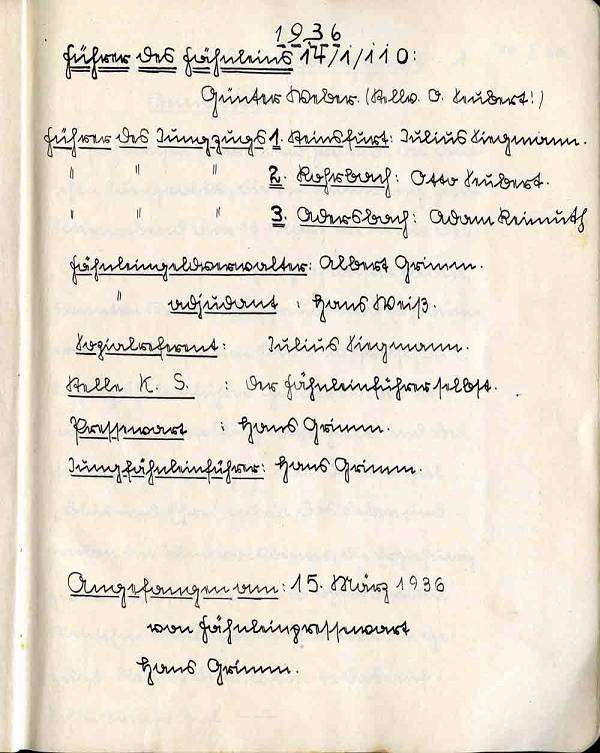 1936
Führer des Fähnleins 14/1/110:
Günter Weber. (Stellv. O. Seubert!)
Führer des Jungzugs 1. Steinsfurt: Julius Siegmann.
" " " 2. Rohrbach: Otto Seubert.
" " " 3. Adersbach: Adam Reimuth
Fähnleingeldverwalter: Albert Grimm.
" adjudant : Hans Weiß.
Sozialreferent: Julius Siegmann.
Stelle K. S. : Der Fähnleinführer selbst.
Pressewart : Hans Grimm.
Jungfähnleinführer: Hans Grimm.
Angefangen am: 15. März 1936
von Fähnleinpressewart
Hans Grimm.